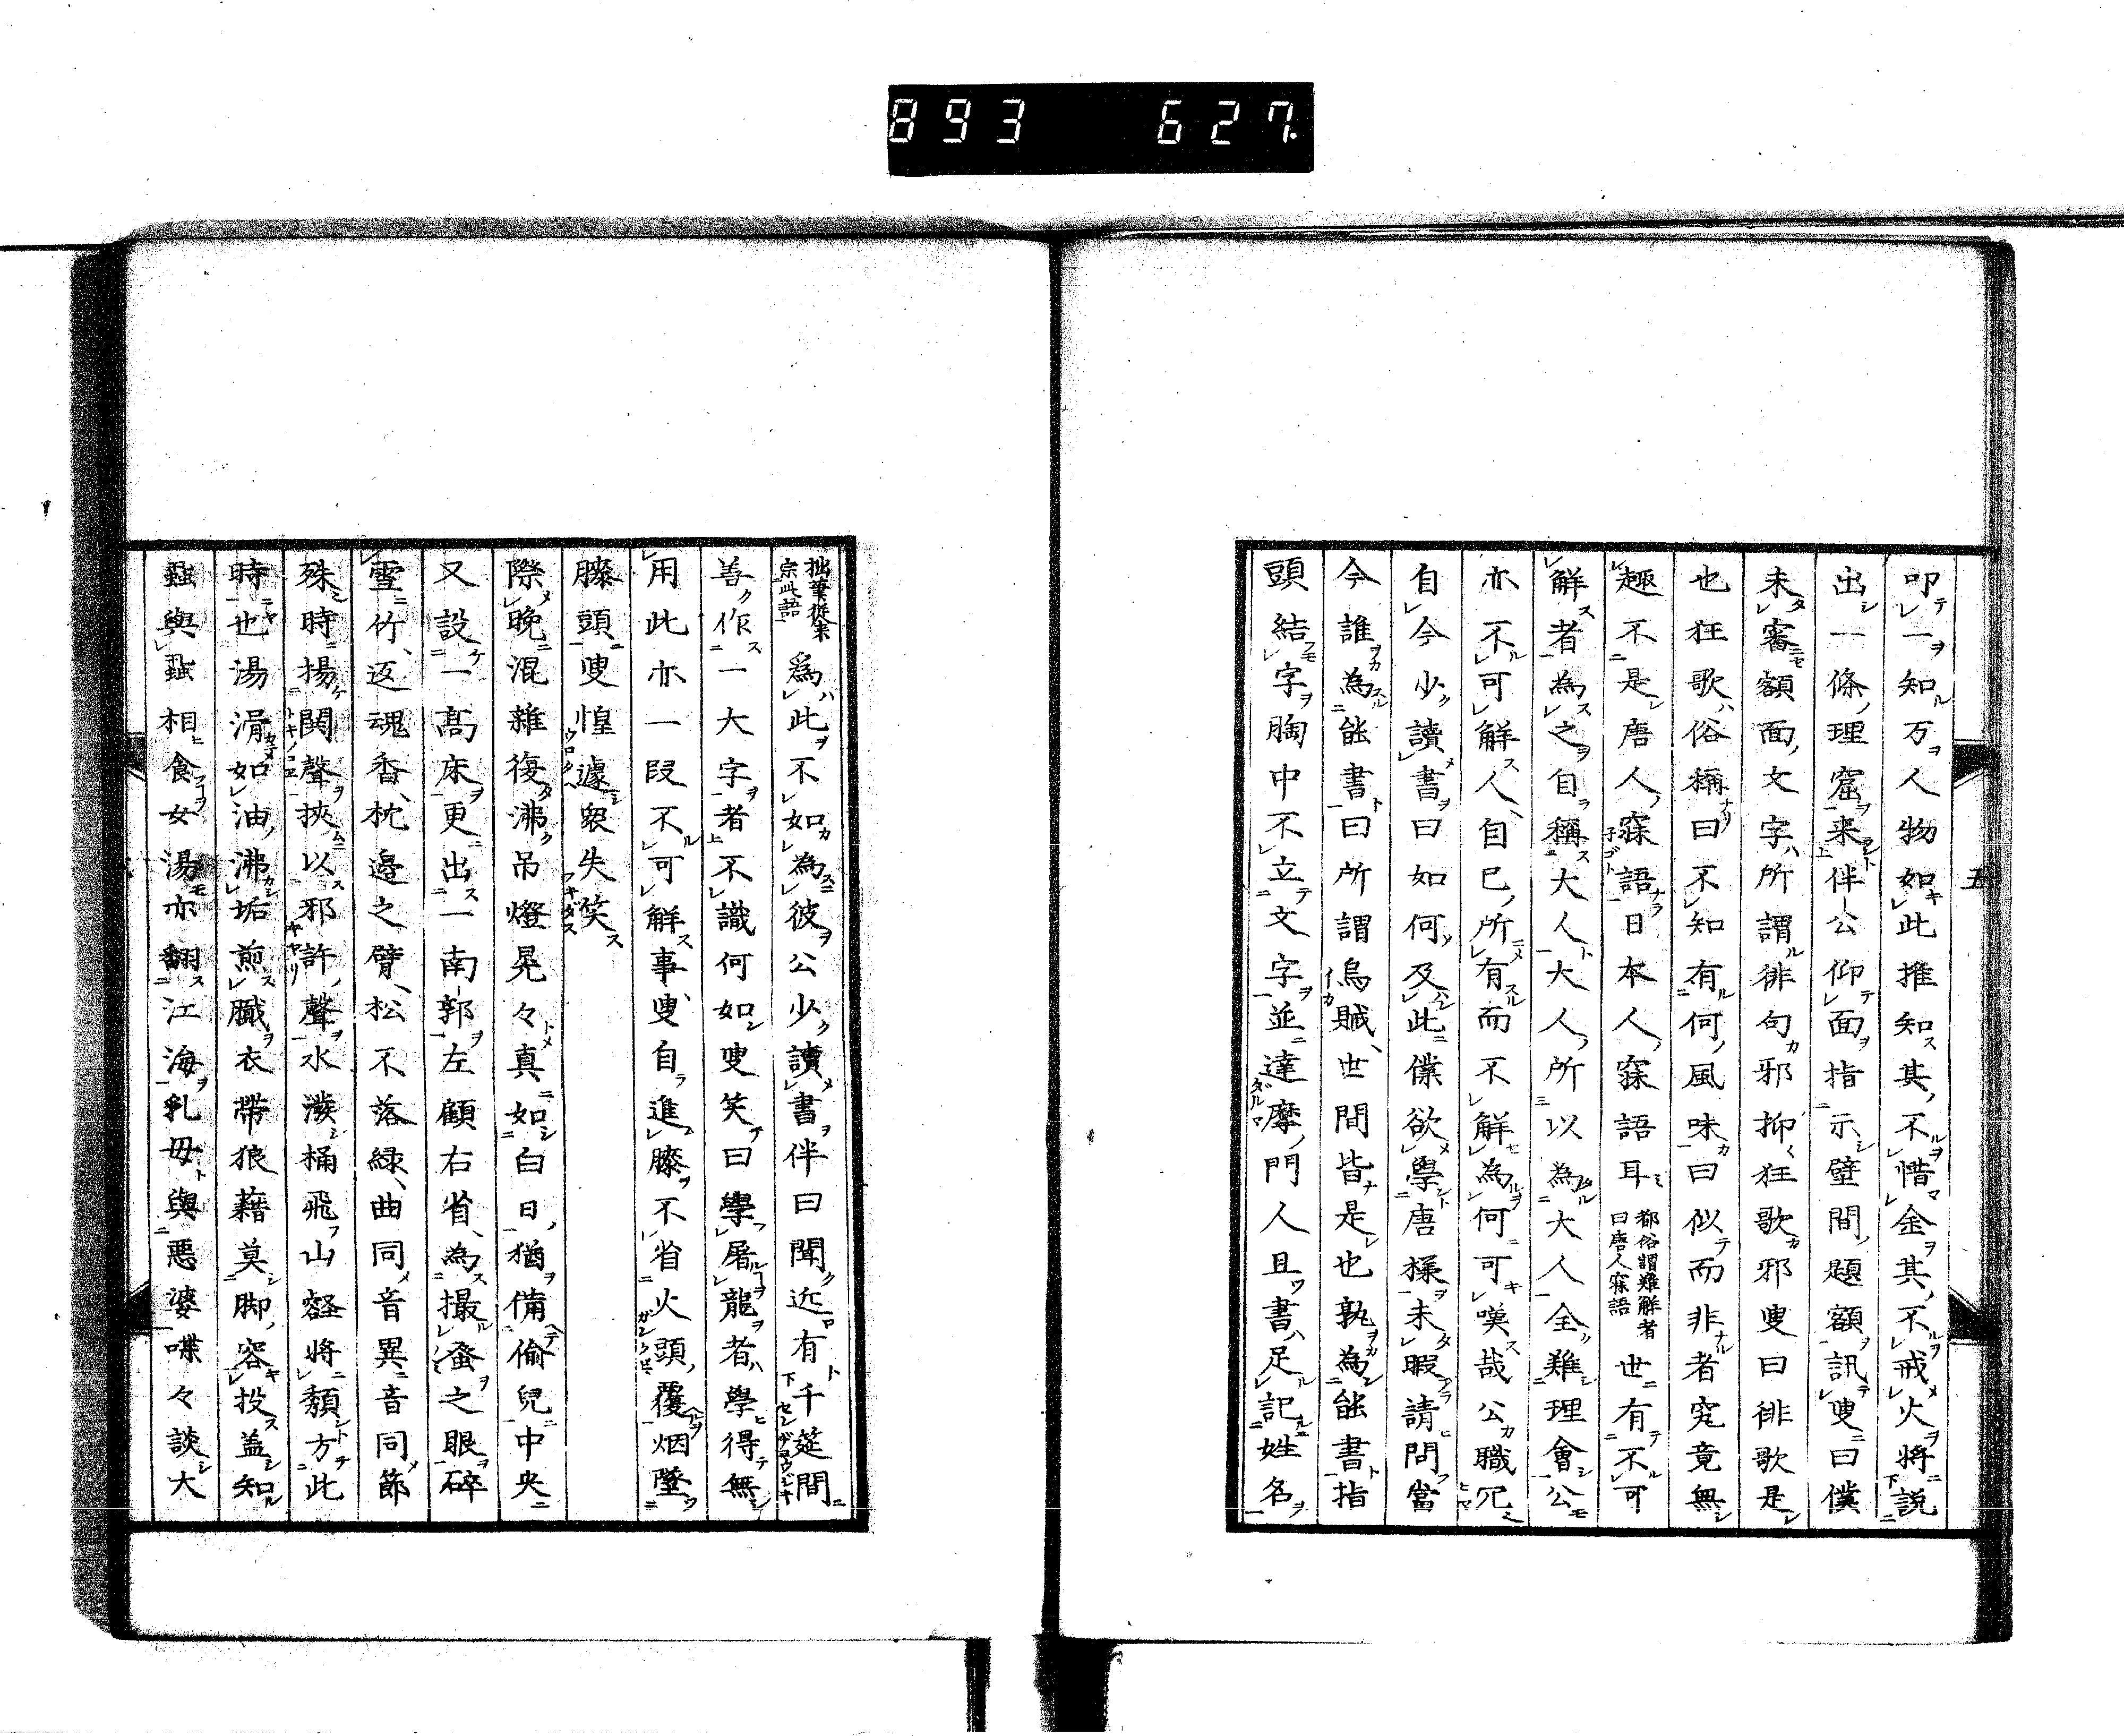 893 627
五
叩一知万人物如此推知其不惜金其不戒火將説
出一條理窟来伴公仰面指示壁間題額訊叟曰僕
未審額面文字所謂徘句邪抑狂歌邪叟曰徘歌是
也狂歌俗稱曰不知有何風味曰似而非者究竟無
趣不是唐人寐語日本人寐語耳都俗謂難解者曰唐人寐語世有不可
解者為之自稱大人大人所以為大人全難理會公
亦不可解人自已所有而不解為何可嘆哉公職冗
自今少讀書曰如何及此僕欲學唐樣未暇請問當
今誰為能書曰所謂烏賊世間皆是也孰為能書指
頭結字胸中不立文字並達摩門人且書足記姓名
拙筆從来宗此語爲此不如為彼公少讀書伴曰聞近有千筵間
善作一大字者不識何如叟笑曰學屠龍者學得無
用此亦一段不可解事叟自進膝不省火頭覆烟墜
膝頭叟惶遽衆失笑
際晚混雜復沸吊燈晃々真如白日猶備偷兒中央
又設一高床更出一南郭左顧右省為撮蚤之眼碎
雪竹返魂香枕邉之臂松不落緑曲同音異音同節
殊時揚鬨聲挾以邪許聲水潑桶飛山壑將頽方此
時也湯滑如油沸垢煎膩衣帶狼藉莫脚容投盖知
蝨與蝨相食女湯亦翻江海乳毋與惡婆喋々談大